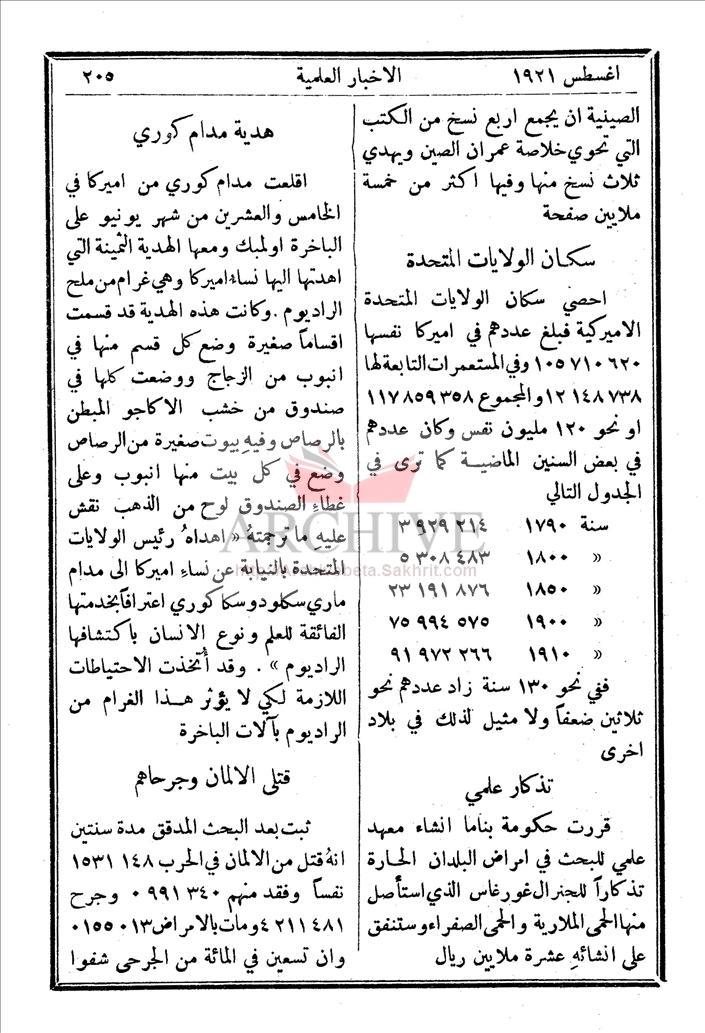 اغسطس ١٩٢١
الاخبار العلمية
٢٠٥
الصينية ان يجمع اربع نسخ من الكتب
التي تحوي خلاصة عمران الصين ويهدي
ثلاث نسخ منها وفيها اكثر من خمسة
ملايين صفحة
سكان الولايات المتحدة
احصي سكان الولايات المتحدة
الاميركية فبلغ عددهم في اميركا نفسها
١٠٥ ٧١٠ ٦٢٠ وفي المستعمرات التابعة لها
١٢ ١٤٨ ٧٣٨ والمجموع ١١٧ ٨٥٩ ٣٥٨
او نحو ١٢٠ مليون نفس وكان عددهم
في بعض السنين الماضية كما ترى في
الجدول التالي
سنة ١٧٩٠ ٣ ٩٢٩ ٢١٤
« ١٨٠٠ ٥ ٣٠٨ ٤٨٣
« ١٨٥٠ ٢٣ ١٩١ ٨٧٦
« ١٩٠٠ ٧٥ ٩٩٤ ٥٧٥
« ١٩١٠ ٩١ ٩٧٢ ٢٦٦
ففي نحو ١٣٠ سنة زاد عددهم نحو
ثلاثين ضعفاً ولا مثيل لذلك في بلاد
اخرى
تذكار علمي
قررت حكومة بناما انشاء معهد
علمي للبحث في امراض البلدان الحارة
تذكاراً للجنرال غورغاس الذي استأصل
منها الحمى الملارية والحمى الصفراء وستنفق
على انشائهِ عشرة ملايين ريال
هدية مدام كوري
اقلعت مدام كوري من اميركا في
الخامس والعشرين من شهر يونيو على
الباخرة اولمبك ومعها الهدية الثمينة التي
اهدتها اليها نساء اميركا وهي غرام من ملح
الراديوم . وكانت هذه الهدية قد قسمت
اقساماً صغيرة وضع كل قسم منها في
انبوب من الزجاج ووضعت كلها في
صندوق من خشب الاكاجو المبطن
بالرصاص وفيهِ بيوت صغيرة من الرصاص
وضع في كل بيت منها انبوب وعلى
غطاءِ الصندوق لوح من الذهب نقش
عليهِ ما ترجمتهُ « اهداهُ رئيس الولايات
المتحدة بالنيابة عن نساءِ اميركا الى مدام
ماري سكلودوسكا كوري اعترافاً بخدمتها
الفائقة للعلم ونوع الانسان باكتشافها
الراديوم » . وقد اُتخذت الاحتياطات
اللازمة لكي لا يؤثر هذا الغرام من
الراديوم بآلات الباخرة
قتلى الالمان وجرحاهم
ثبت بعد البحث المدقق مدة سنتين
انهُ قتل من الالمان في الحرب ١٤٨ ١٥٣١
نفساً وفقد منهم ٣٤٠ ٩٩١ ٠ وجرح
٤ ٢١١ ٤٨١ ومات بالامراض ٠١٣ ٠١٥٥
وان تسعين في المائة من الجرحى شفوا
ARCHIVE